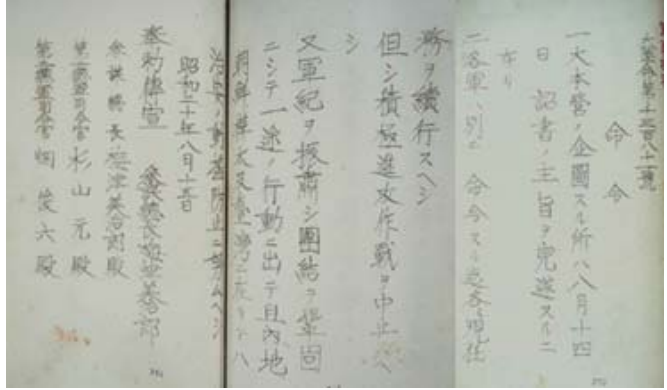 大陸命第千三百八十一號
命令
一大本營ノ企圖スル所ハ八月十四
日詔書ノ主旨ヲ完遂スルニ
在リ
二各軍ハ別ニ命令スル迄各現任
務ヲ續行スヘシ
但シ積極進攻作戰ヲ中止スヘ
シ
又軍紀ヲ振肅シ團結ヲ鞏固
ニシテ一途ノ行動ニ出テ且內地
朝鮮樺太及臺灣ニ在リテハ
治安ノ動搖防止ニ努ムヘシ
昭和二十年八月十五日
奉勅傳宣 參謀總長梅津美治郎
參謀總長梅津美治郎殿
第一總軍司令官杉山元殿
第二總軍司令官畑俊六殿